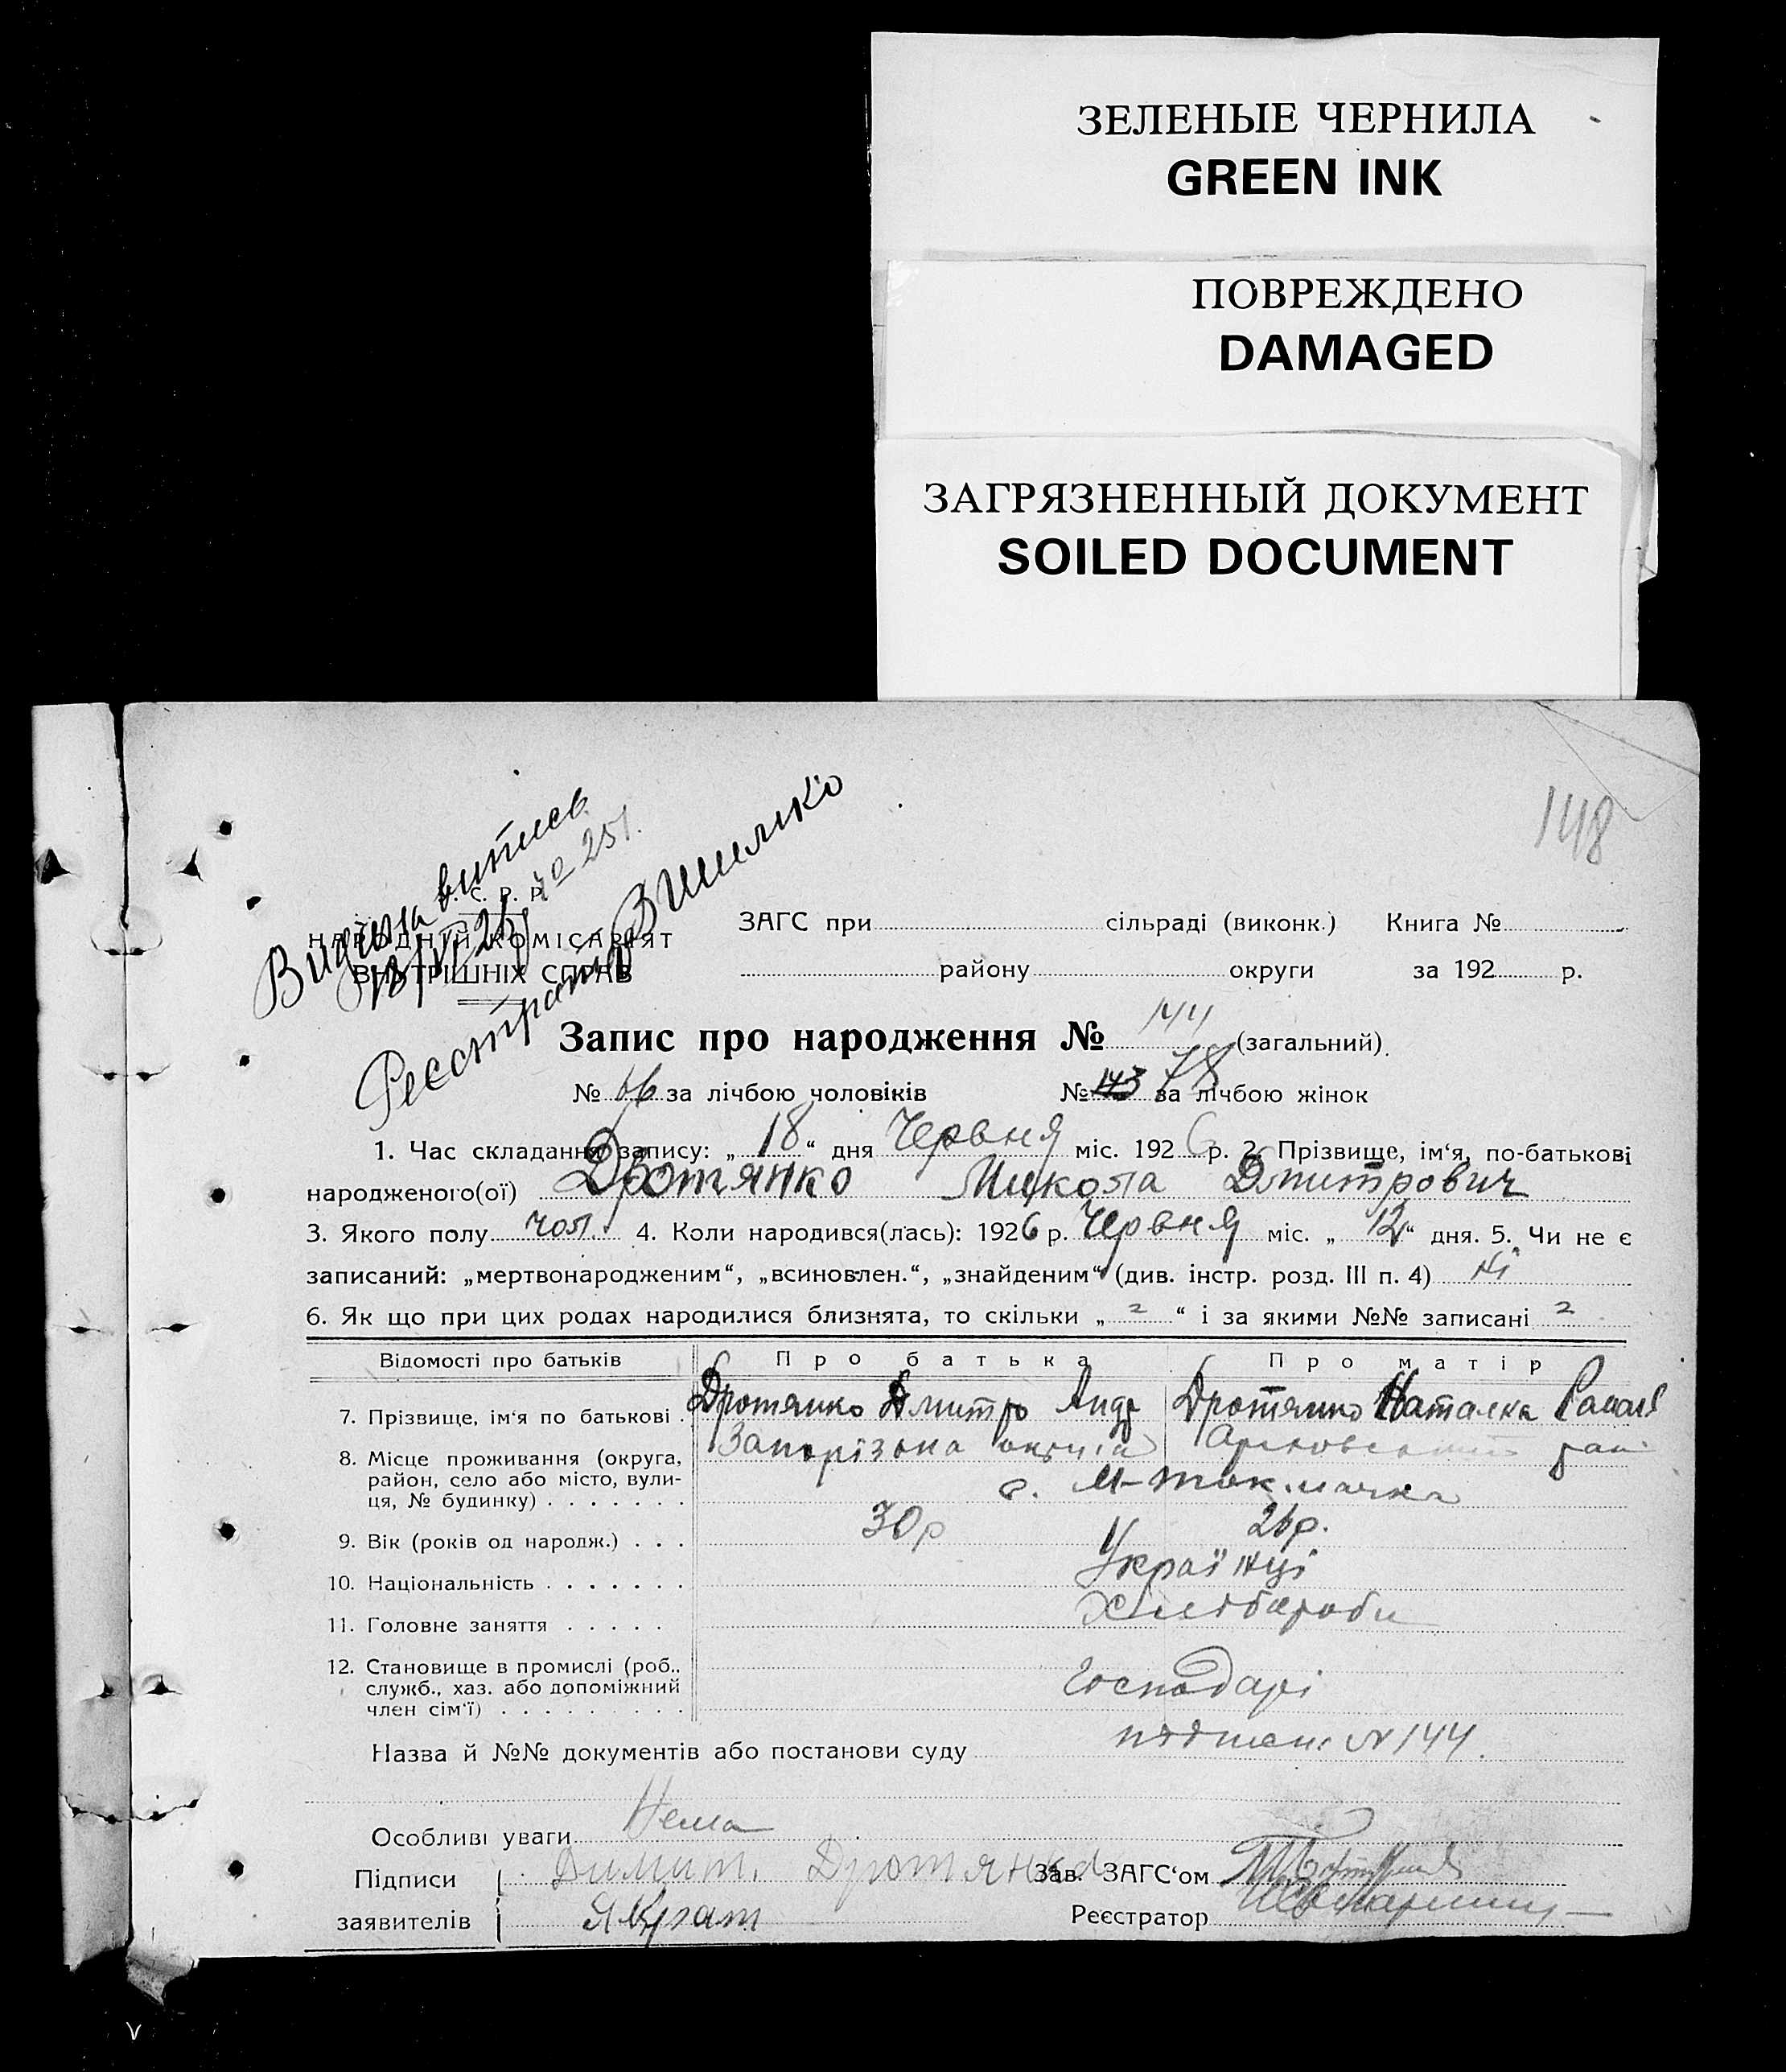 ЗЕЛЕНЫЕ ЧЕРНИЛА
GREEN INK
ПОВРЕЖДЕНО
DAMAGED
ЗАГРЯЗНЕННЫЙ ДОКУМЕНТ
SOILED DOCUMENT
148
Видана витись
251.
Реєстратор
С. Р. Р.
НАРОДНІЙ КОМІСАРІЯТ
ВНУТРІШНІХ СПРАВ
ЗАГС при сільраді (виконк.) Книга №
району округи за 192 р.
Запис про народження № 144 (загальний).
№ 66 за лічбою чоловіків № 143 78 за лічбою жінок
1. Час складання запису: „ 18 “ дня Червня міс. 1926 р. 2. Прізвище, ім‘я, по-батькові
народженого(ої) Дротянко Микола Дмитрович
3. Якого полу чол. 4. Коли народився(лась): 1926 р. Червня міс. „ 12 “ дня. 5. Чи не є
записаний: „мертвонародженим“, „всиновлен.“, „знайденим“ (див. інстр. розд. III п. 4) ні
6. Як що при цих родах народилися близнята, то скільки „ 2 “ і за якими №№ записані 2
Відомості про батьків Про батька Про матір
7. Прізвище, ім‘я по батькові . Дротянко Дмитро Андр Дротянко Наталка
8. Місце проживання (округа, Запорізька округа
район, село або місто, вули- с. М-Токмачка
ця, № будинку) . . . . . . .
9. Вік (років од народж.) . . . 30 р 26 р.
10. Національність . . . . . . . Українці
11. Головне заняття . . . . . Хлібороби
12. Становище в промислі (роб.. Господарі
служб., хаз. або допоміжний
член сім‘ї) . . . . . . . . .
Назва й №№ документів або постанови суду № 144.
Особливі уваги Нема
Підписи Димит. Дротянко Зав. ЗАГС‘ом
заявителів Реєстратор